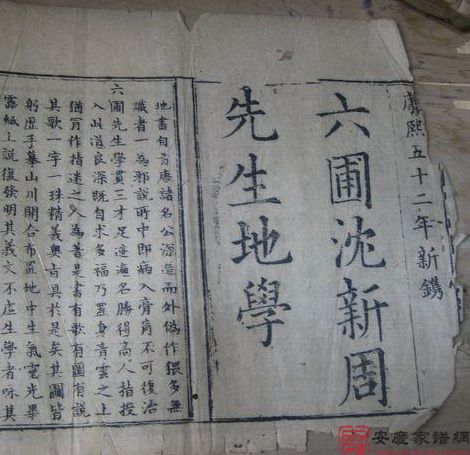 康熙五十二年新鐫
六圃沈新周
先生地學
地書自晋唐諸名公源造而外偽作猥多無
識者一為邪說所中即病入膏肓不可復治
六圃先生學貫三才足迹遍名勝得高人指授
入此道良深既自求多福乃置身青雲之上
猶肎作指迷之人為著是書有歌有圖有說
其歌一字一珠精義奧旨具於是矣其圖皆
躬歷手摹山川開合布置地中生氣靈光畢
露紙上說復發明其義文不虛生學者咏其
安慶家譜網